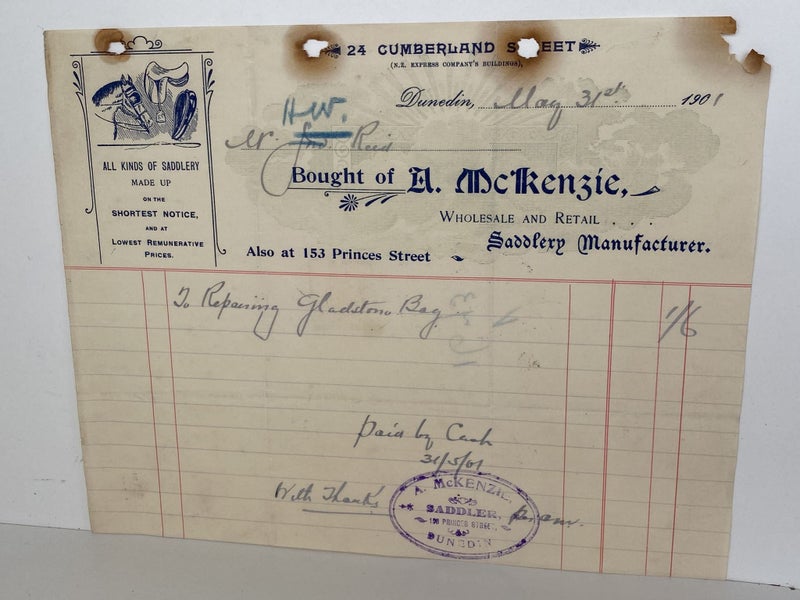 24 CUMBERLAND STREET
(N.Z. EXPRESS COMPANY'S BUILDINGS),
Dunedin, May 31st 1901
H.W.
Mr. Jno. Reid
Bought of A. McKenzie,
WHOLESALE AND RETAIL . . .
Saddlery Manufacturer.
Also at 153 Princes Street
ALL KINDS OF SADDLERY
MADE UP
ON THE
SHORTEST NOTICE,
AND AT
LOWEST REMUNERATIVE
PRICES.
To Repairing Gladstone Bag 1/6
Paid by Cash
31/5/01
With Thanks
A. McKENZIE,
SADDLER,
PRINCES STREET,
DUNEDIN